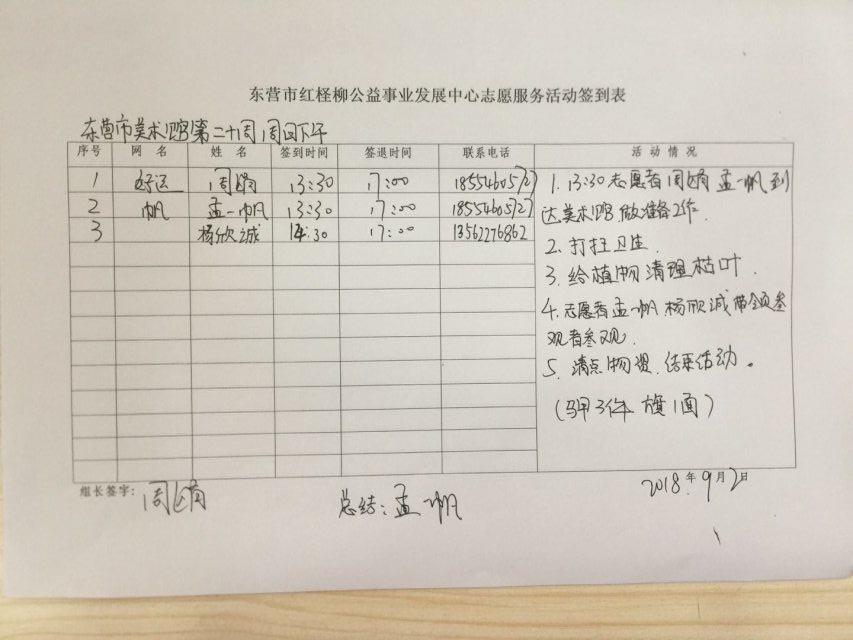 东营市红柽柳公益事业发展中心志愿服务活动签到表
东营市美术馆第二十周周日下午
序号 网名 姓名 签到时间 签退时间 联系电话 活动情况
1 好运 周 13:30 17:00 18554605727
2 帆 孟一帆 13:30 17:00 18554605727
3 杨欣诚 14:30 17:00 13562276862
1. 13:30志愿者周 孟一帆到
达美术馆做准备工作.
2. 打扫卫生.
3. 给植物清理枯叶.
4. 志愿者孟一帆 杨欣诚带领参
观者参观.
5. 清点物资.结束活动。
(马甲3件 旗1面)
组长签字: 周
总结: 孟一帆
2018年9月2日